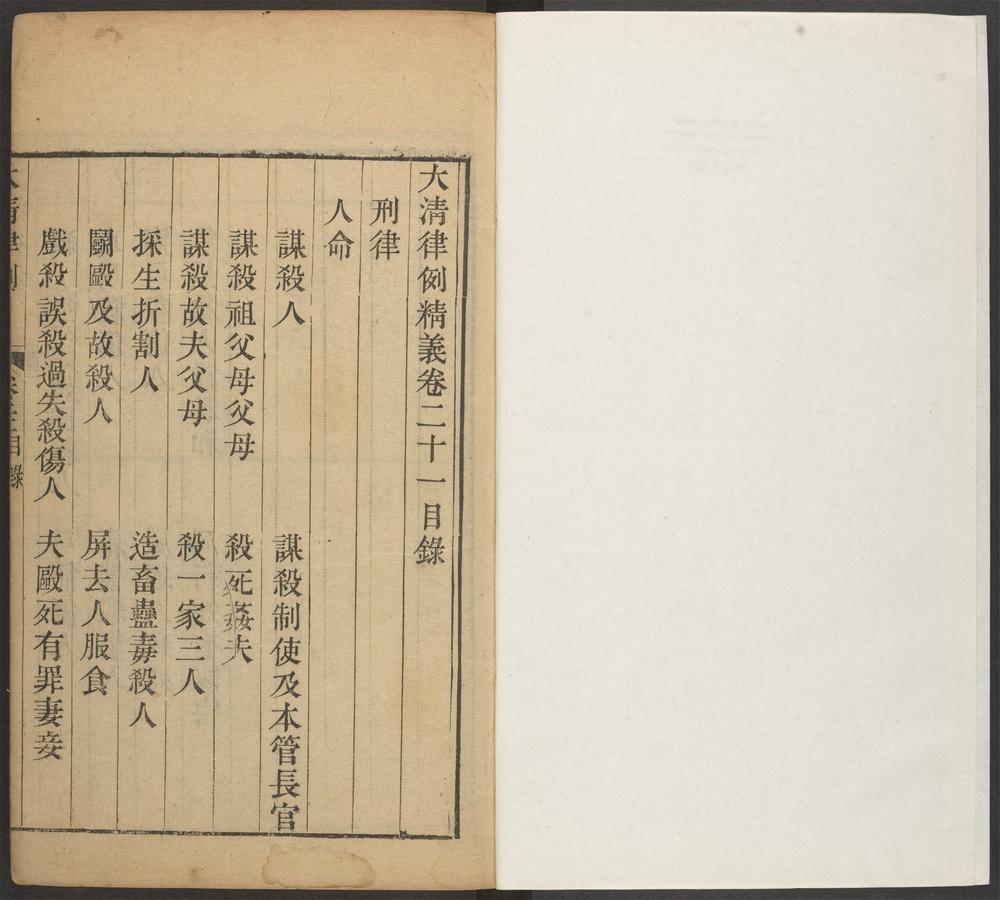 大清律例精義卷二十一目錄
刑律
人命
謀殺人　謀殺制使及本管長官
謀殺祖父母父母　殺死姦夫
謀殺故夫父母　殺一家三人
採生折割人　造畜蠱毒殺人
鬭毆及故殺人　屏去人服食
戲殺誤殺過失殺傷人　夫毆死有罪妻妾